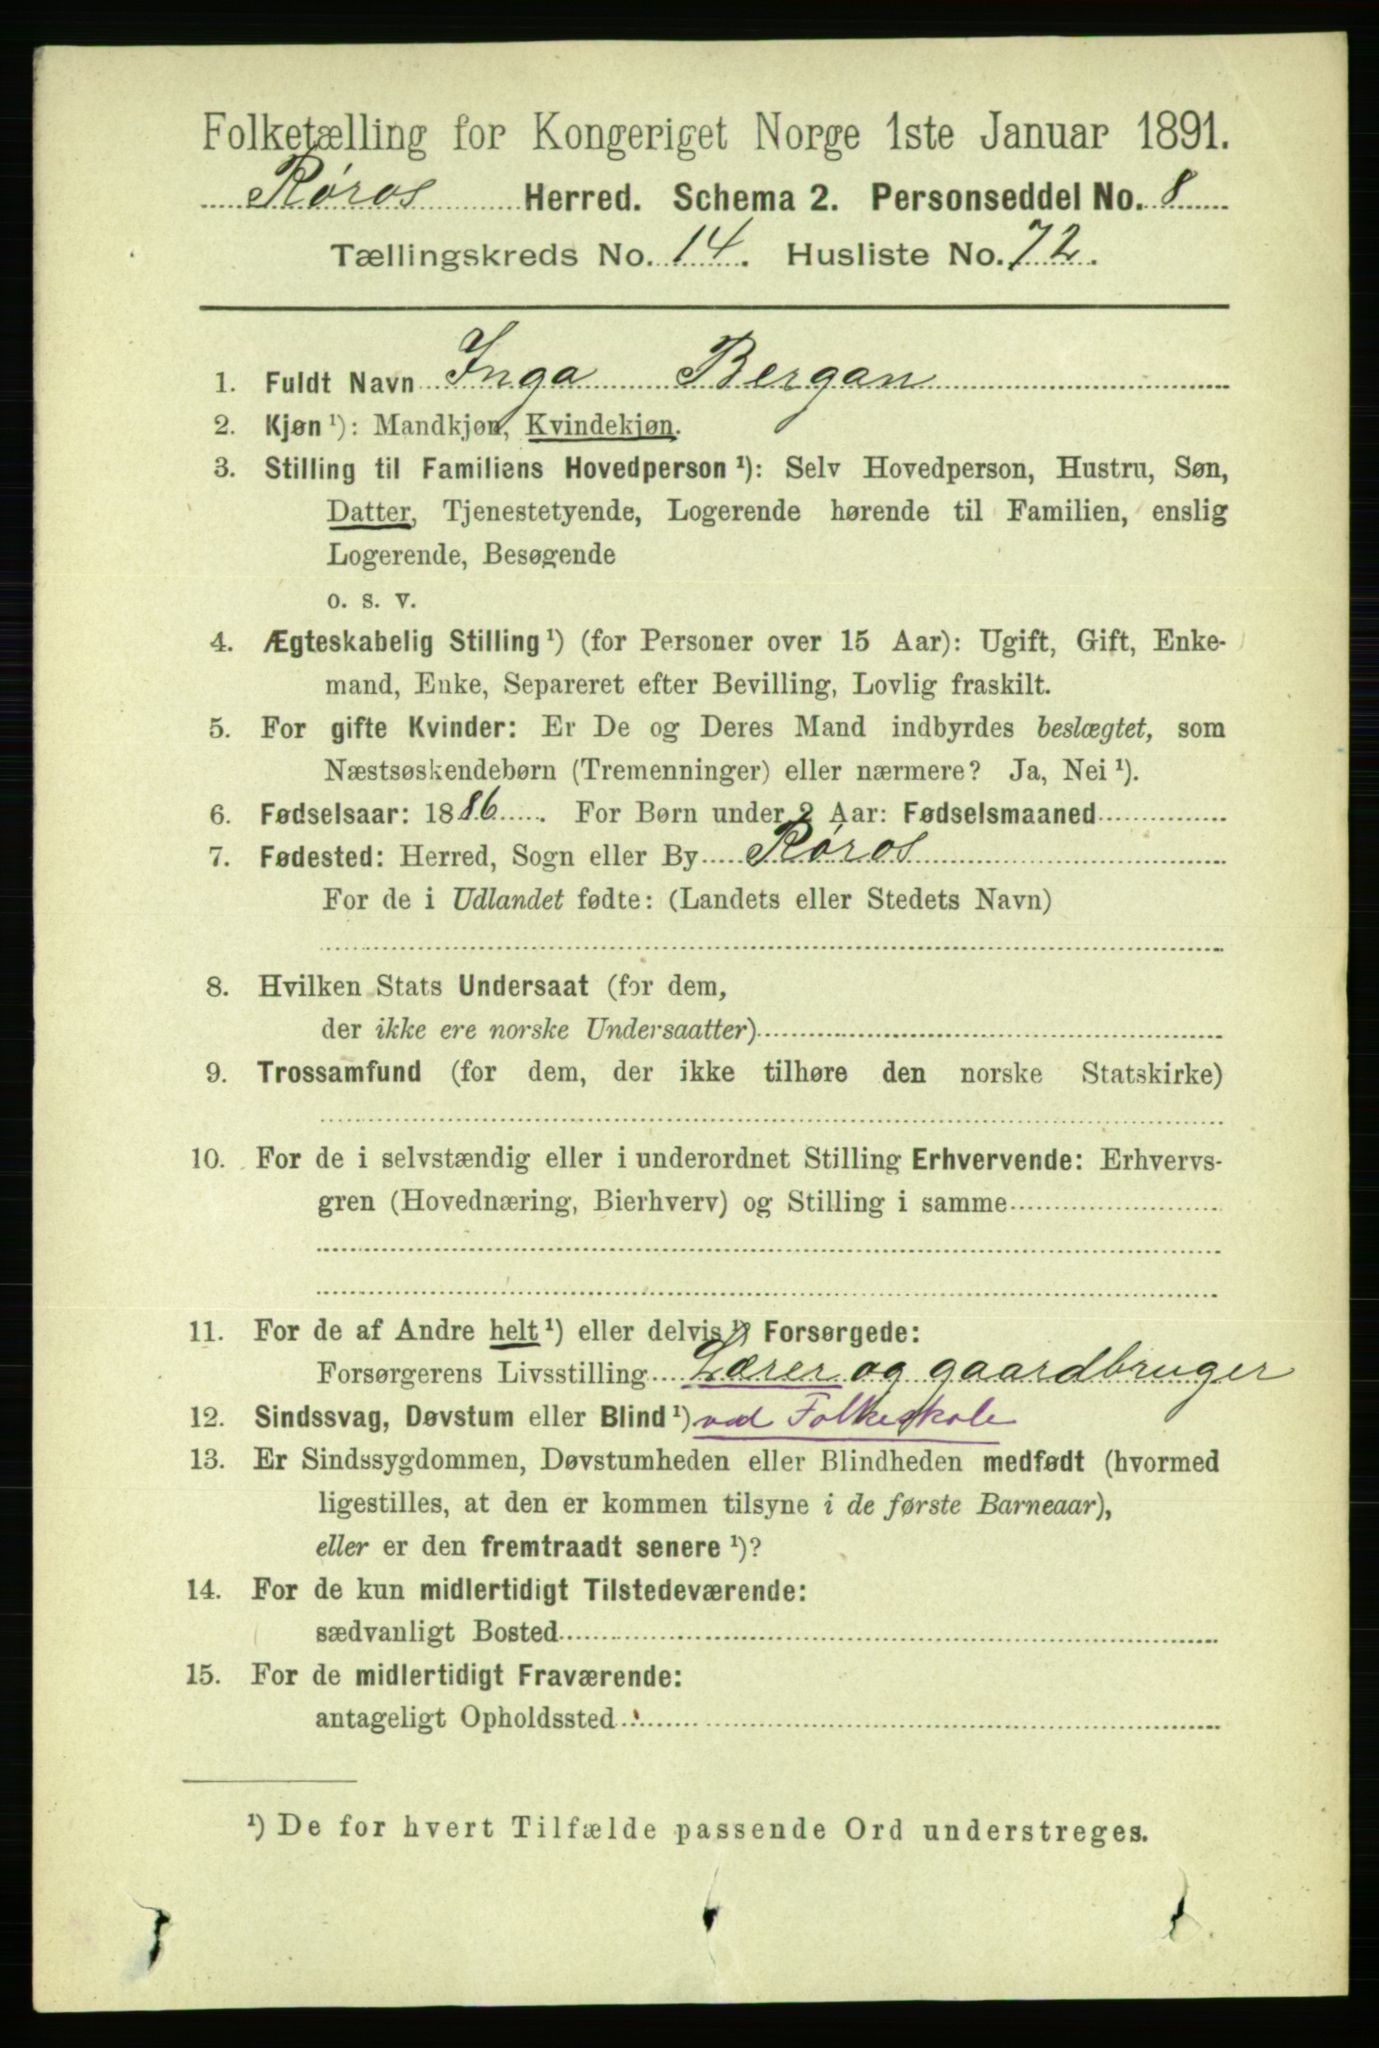 Folketælling for Kongeriget Norge 1ste Januar 1891.
Røros Herred. Schema 2. Personseddel No. 8
Tællingskreds No. 14. Husliste No. 72.
1. Fuldt Navn Inga Bergan
2. Kjøn ¹): Mandkjøn, Kvindekjøn.
3. Stilling til Familiens Hovedperson ¹): Selv Hovedperson, Hustru, Søn,
Datter, Tjenestetyende, Logerende hørende til Familien, enslig
Logerende, Besøgende
o. s. v.
4. Ægteskabelig Stilling ¹) (for Personer over 15 Aar): Ugift, Gift, Enke-
mand, Enke, Separeret efter Bevilling, Lovlig fraskilt.
5. For gifte Kvinder: Er De og Deres Mand indbyrdes beslægtet, som
Næstsøskendebørn (Tremenninger) eller nærmere? Ja, Nei ¹).
6. Fødselsaar: 1886. For Børn under 2 Aar: Fødselsmaaned
7. Fødested: Herred, Sogn eller By Røros
For de i Udlandet fødte: (Landets eller Stedets Navn)
8. Hvilken Stats Undersaat (for dem,
der ikke ere norske Undersaatter)
9. Trossamfund (for dem, der ikke tilhøre den norske Statskirke)
10. For de i selvstændig eller i underordnet Stilling Erhvervende: Erhvervs-
gren (Hovednæring, Bierhverv) og Stilling i samme
11. For de af Andre helt ¹) eller delvis ¹) Forsørgede:
Forsørgerens Livsstilling Lærer og gaardbruger
12. Sindssvag, Døvstum eller Blind ¹) ved Folkeskole
13. Er Sindssygdommen, Døvstumheden eller Blindheden medfødt (hvormed
ligestilles, at den er kommen tilsyne i de første Barneaar),
eller er den fremtraadt senere ¹)?
14. For de kun midlertidigt Tilstedeværende:
sædvanligt Bosted
15. For de midlertidigt Fraværende:
antageligt Opholdssted
¹) De for hvert Tilfælde passende Ord understreges.